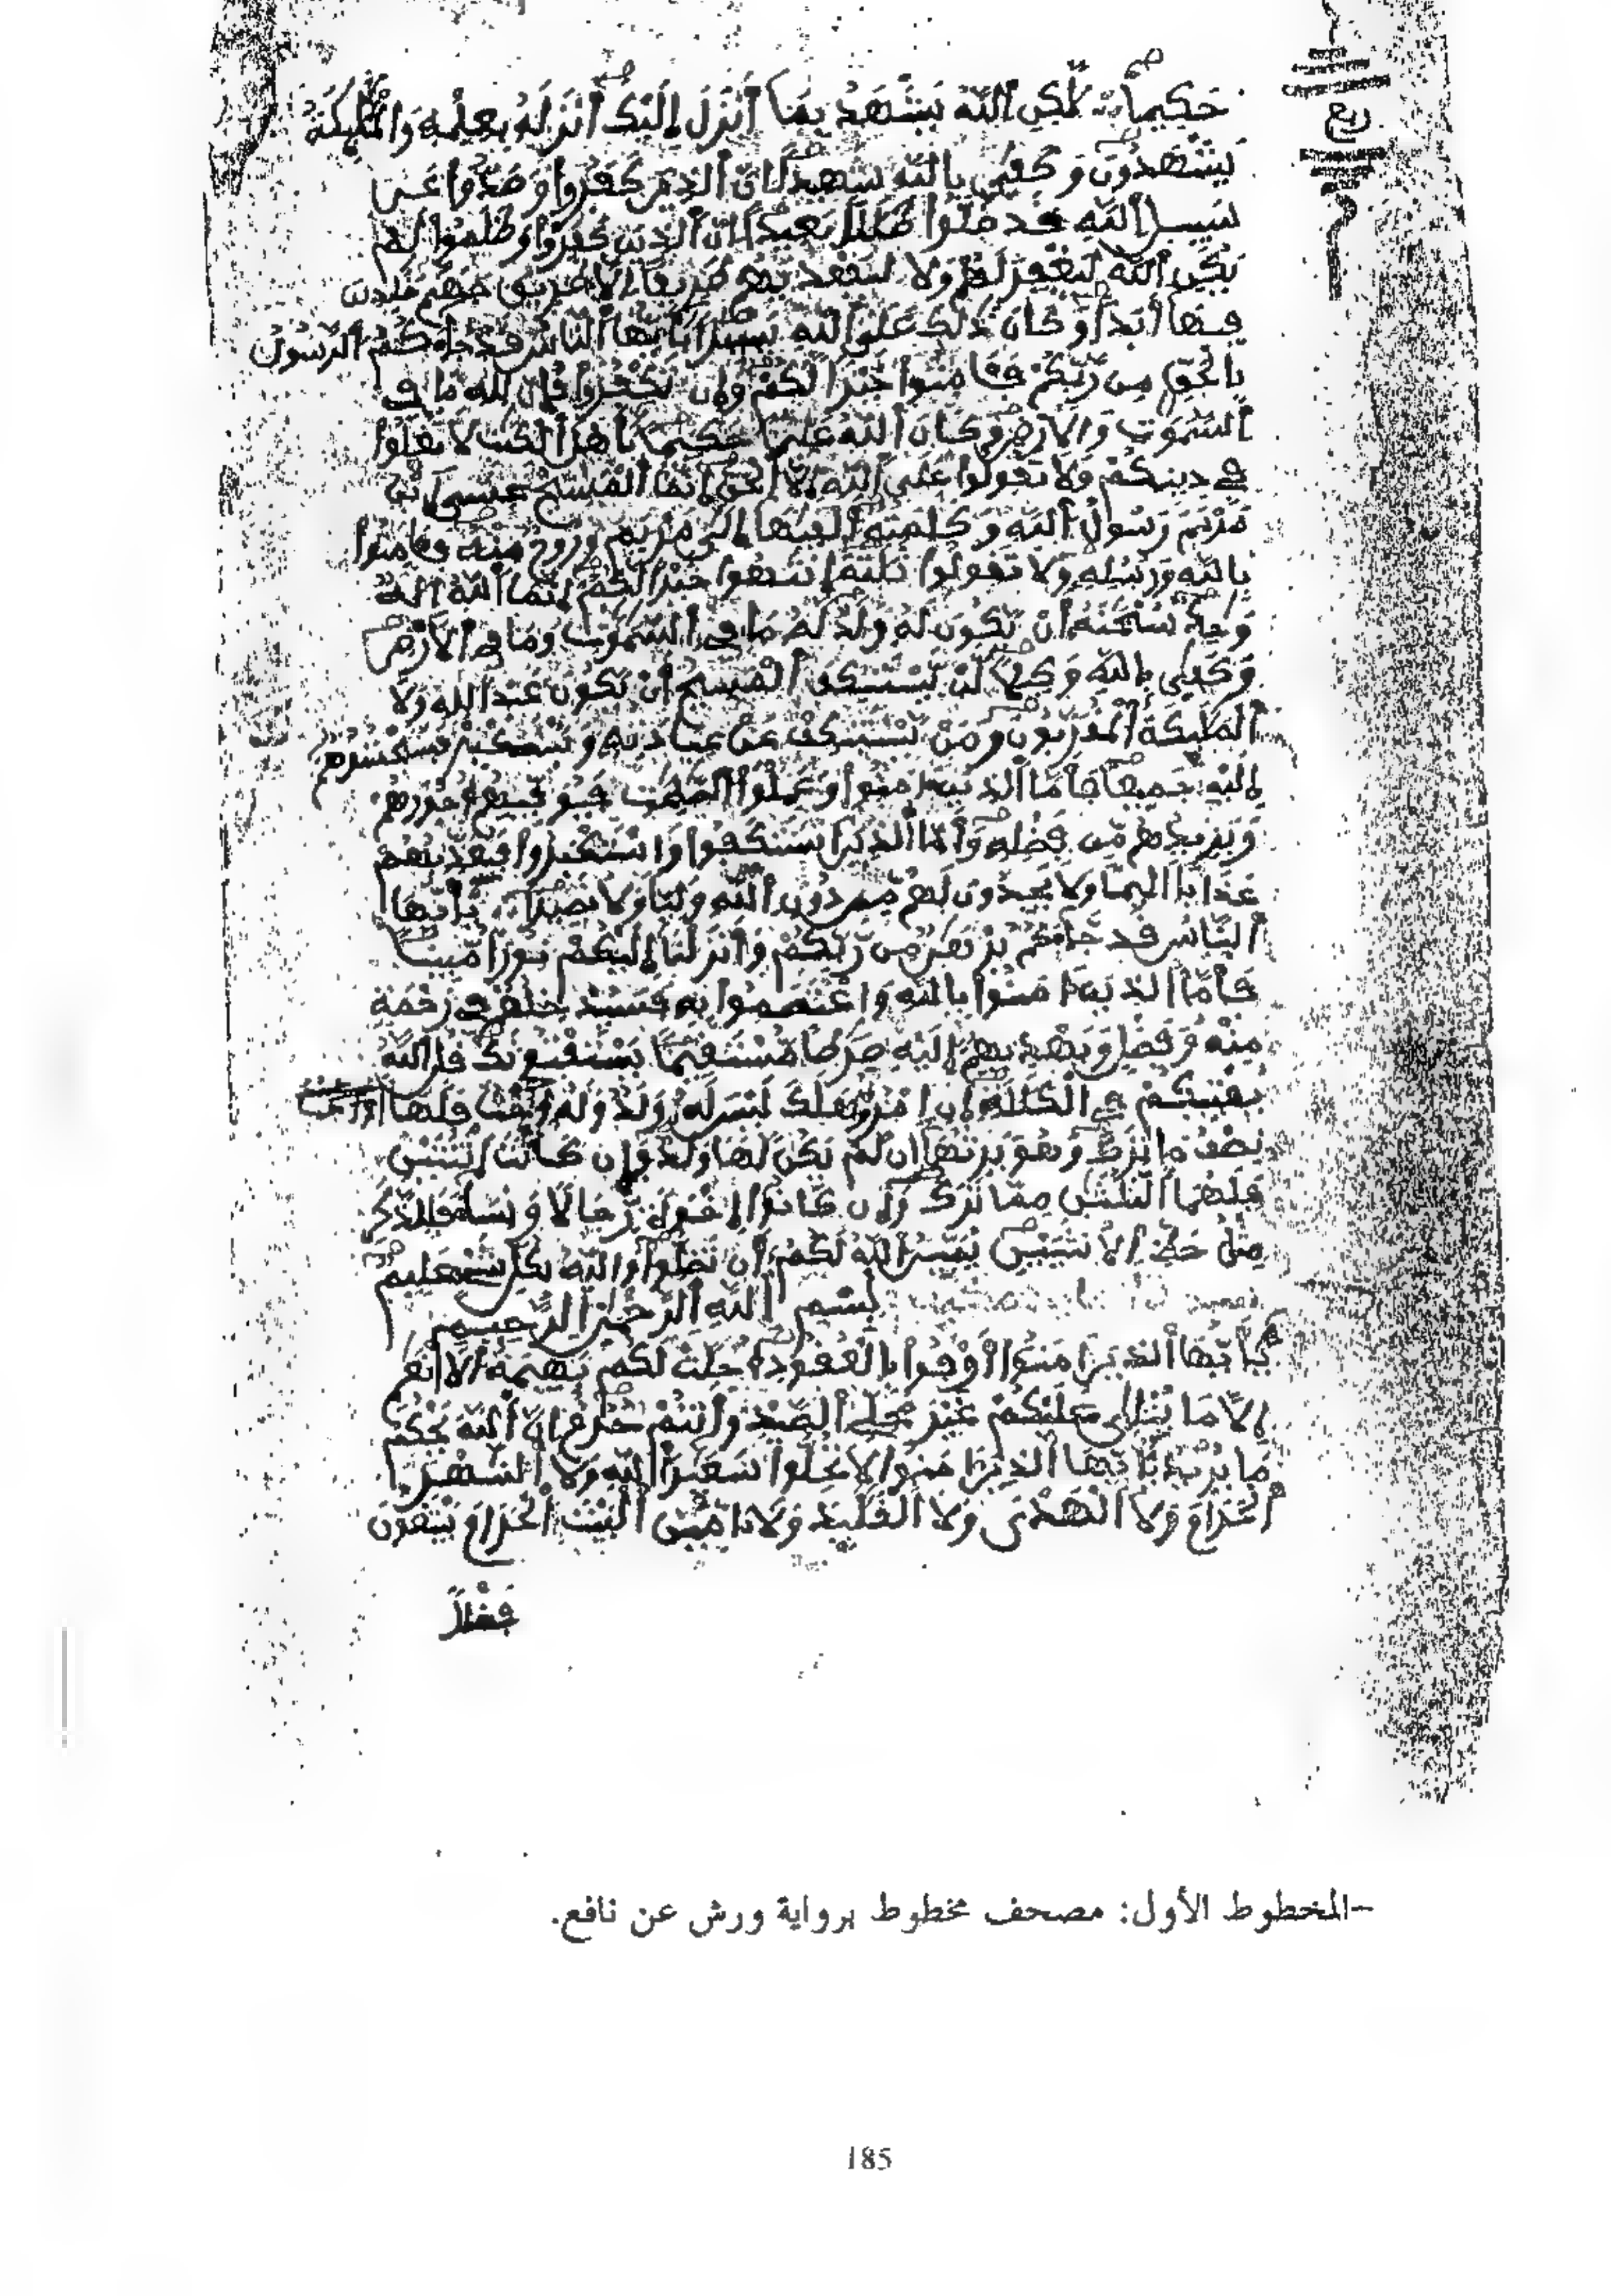 ربع
حَكِيماً لَّكِنِ اِللَّهُ يَشْهَدُ بِمَا أَنزَلَ إِلَيْكَ أَنزَلَهُ بِعِلْمِهِ وَالْمَلَٰئِكَةُ
يَشْهَدُونَ وَكَفَىٰ بِاللَّهِ شَهِيداً اِنَّ اَلذِينَ كَفَرُوا وَصَدُّوا عَن
سَبِيلِ اِللَّهِ قَد ضَّلُّوا ضَلَٰلاً بَعِيداً اِنَّ اَلذِينَ كَفَرُوا وَظَلَمُوا لَمْ
يَكُنِ اِللَّهُ لِيَغْفِرَ لَهُمْ وَلَا لِيَهْدِيَهُمْ طَرِيقاً اِلَّا طَرِيقَ جَهَنَّمَ خَٰلِدِينَ
فِيهَا أَبَداً وَكَانَ ذَٰلِكَ عَلَى اَللَّهِ يَسِيراً يَٰأَيُّهَا اَلنَّاسُ قَدْ جَاءَكُمُ اُلرَّسُولُ
بِالْحَقِّ مِن رَّبِّكُمْ فَـَٔامِنُوا خَيْراً لَّكُمْ وَإِن تَكْفُرُوا فَإِنَّ لِلهِ مَا فِي
اِلسَّمَٰوَٰتِ وَالَارْضِ وَكَانَ اَللَّهُ عَلِيماً حَكِيماً يَٰأَهْلَ اَلْكِتَٰبِ لَا تَغْلُوا
فِي دِينِكُمْ وَلَا تَقُولُوا عَلَى اَللَّهِ إِلَّا اَلْحَقَّ إِنَّمَا اَلْمَسِيحُ عِيسَى اَبْنُ
مَرْيَمَ رَسُولُ اُللَّهِ وَكَلِمَتُهُ أَلْقَىٰهَا إِلَىٰ مَرْيَمَ وَرُوحٌ مِّنْهُ فَـَٔامِنُوا
بِاللَّهِ وَرُسُلِهِ وَلَا تَقُولُوا ثَلَٰثَةٌ اِنتَهُوا خَيْراً لَّكُمْ إِنَّمَا اَللَّهُ إِلَٰهٌ
وَٰحِدٌ سُبْحَٰنَهُ أَنْ يَّكُونَ لَهُ وَلَدٌ لَّهُ مَا فِي اِلسَّمَٰوَٰتِ وَمَا فِي اِلَارْضِ
وَكَفَىٰ بِاللَّهِ وَكِيلاً لَّنْ يَّسْتَنكِفَ اَلْمَسِيحُ أَنْ يَّكُونَ عَبْداً لِلهِ وَلَا
اَلْمَلَٰئِكَةُ اُلْمُقَرَّبُونَ وَمَنْ يَّسْتَنكِفْ عَنْ عِبَادَتِهِ وَيَسْتَكْبِرْ فَسَيَحْشُرُهُمْ
إِلَيْهِ جَمِيعاً فَأَمَّا اَلذِينَ ءَامَنُوا وَعَمِلُوا اُلصَّٰلِحَٰتِ فَيُوَفِّيهِمُ أُجُورَهُمْ
وَيَزِيدُهُم مِّن فَضْلِهِ وَأَمَّا اَلذِينَ اَسْتَنكَفُوا وَاسْتَكْبَرُوا فَيُعَذِّبُهُمْ
عَذَاباً اَلِيماً وَلَا يَجِدُونَ لَهُم مِّن دُونِ اِللَّهِ وَلِيّاً وَلَا نَصِيراً يَٰأَيُّهَا
اَلنَّاسُ قَدْ جَاءَكُم بُرْهَٰنٌ مِّن رَّبِّكُمْ وَأَنزَلْنَا إِلَيْكُمْ نُوراً مُّبِيناً
فَأَمَّا اَلذِينَ ءَامَنُوا بِاللَّهِ وَاعْتَصَمُوا بِهِ فَسَيُدْخِلُهُمْ فِي رَحْمَةٍ
مِّنْهُ وَفَضْلٍ وَيَهْدِيهِمُ إِلَيْهِ صِرَٰطاً مُّسْتَقِيماً يَسْتَفْتُونَكَ قُلِ اِللَّهُ
يُفْتِيكُمْ فِي اِلْكَلَٰلَةِ إِنِ اِمْرُؤٌاْ هَلَكَ لَيْسَ لَهُ وَلَدٌ وَلَهُ أُخْتٌ فَلَهَا
نِصْفُ مَا تَرَكَ وَهُوَ يَرِثُهَا إِن لَّمْ يَكُن لَّهَا وَلَدٌ فَإِن كَانَتَا اَثْنَتَيْنِ
فَلَهُمَا اَلثُّلُثَٰنِ مِمَّا تَرَكَ وَإِن كَانُوا إِخْوَةً رِّجَالاً وَنِسَاءً فَلِلذَّكَرِ
مِثْلُ حَظِّ اِلُانثَيَيْنِ يُبَيِّنُ اُللَّهُ لَكُمُ أَن تَضِلُّوا وَاللَّهُ بِكُلِّ شَيْءٍ عَلِيمٌ
بِسْمِ اِللَّهِ اِلرَّحْمَٰنِ اِلرَّحِيمِ
يَٰأَيُّهَا اَلذِينَ ءَامَنُوا أَوْفُوا بِالْعُقُودِ أُحِلَّتْ لَكُم بَهِيمَةُ اُلَانْعَٰمِ
إِلَّا مَا يُتْلَىٰ عَلَيْكُمْ غَيْرَ مُحِلِّي اِلصَّيْدِ وَأَنتُمْ حُرُمٌ اِنَّ اَللَّهَ يَحْكُمُ
مَا يُرِيدُ يَٰأَيُّهَا اَلذِينَ ءَامَنُوا لَا تُحِلُّوا شَعَٰئِرَ اَللَّهِ وَلَا اَلشَّهْرَ
اَلْحَرَامَ وَلَا اَلْهَدْيَ وَلَا اَلْقَلَٰئِدَ وَلَا ءَامِّينَ اَلْبَيْتَ اَلْحَرَامَ يَبْتَغُونَ
فَضْلاً
-المخطوط الأول: مصحف مخطوط برواية ورش عن نافع.
185